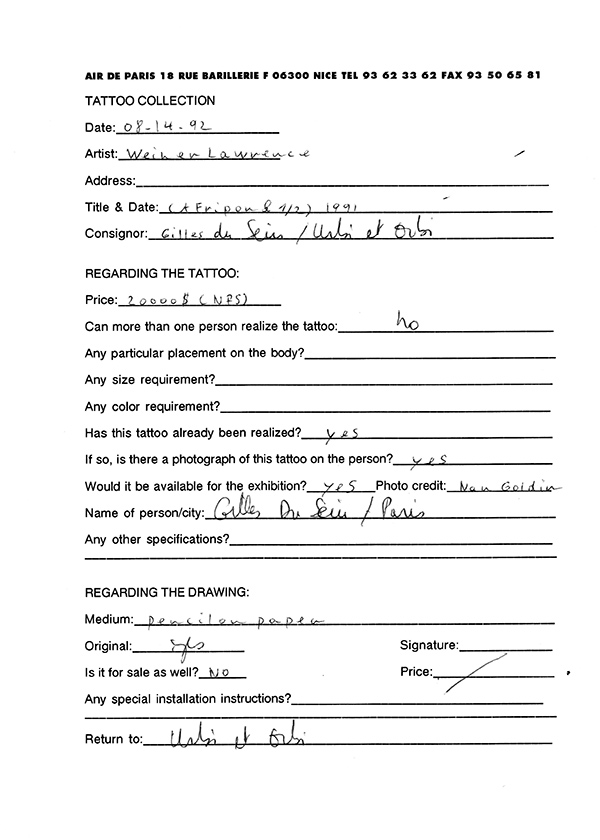 AIR DE PARIS 18 RUE BARILLERIE F 06300 NICE TEL 93 62 33 62 FAX 93 50 65 81
TATTOO COLLECTION
Date: 08-14-92
Artist: Weiner Lawrence
Address:
Title & Date: (A Fripon & 1/2) 1991
Consignor: Gilles du Sein / Urbi et Orbi
REGARDING THE TATTOO:
Price: 20000$ (NFS)
Can more than one person realize the tattoo: no
Any particular placement on the body?
Any size requirement?
Any color requirement?
Has this tattoo already been realized? yes
If so, is there a photograph of this tattoo on the person? yes
Would it be available for the exhibition? yes Photo credit: Nan Goldin
Name of person/city: Gilles Du Sein / Paris
Any other specifications?
REGARDING THE DRAWING:
Medium: pencil on paper
Original: yes Signature:
Is it for sale as well? NO Price:
Any special installation instructions?
Return to: Urbi et Orbi